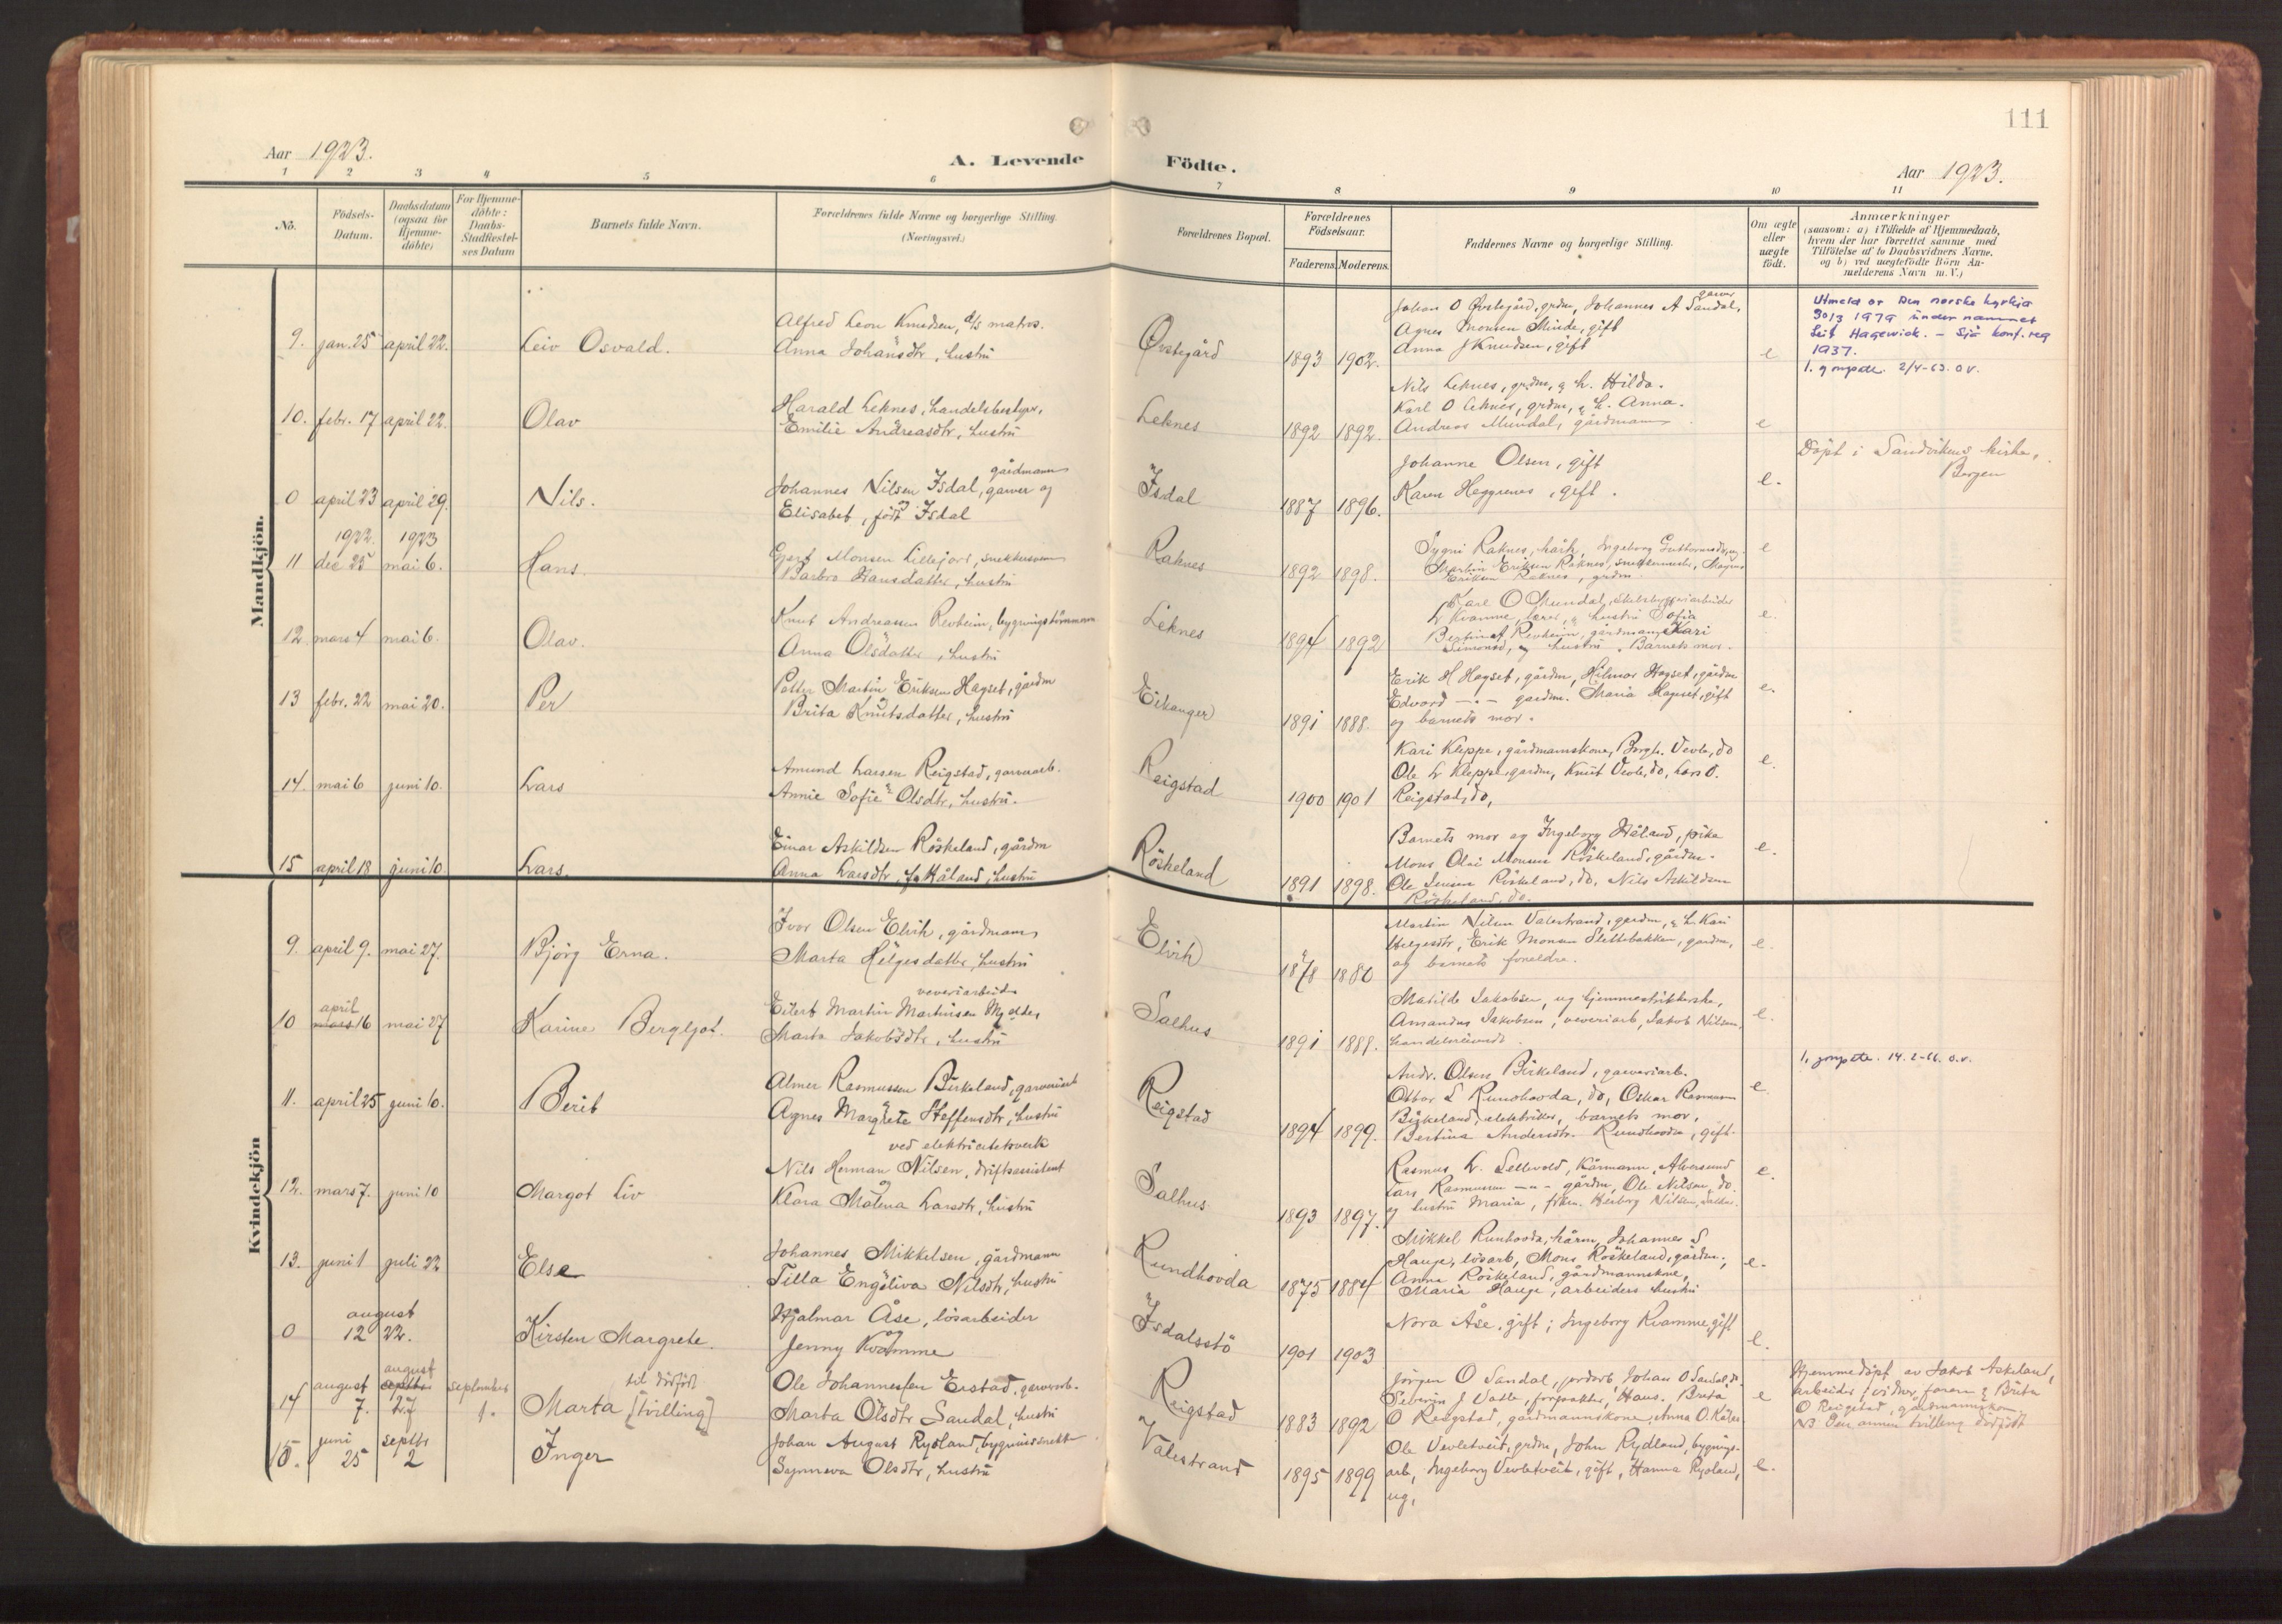 111
Aar 1923.
A. Levende Födte.
Aar 1923.
1 2 3 4 5 6 7 8 9 10 11
No.
Födsels-Datum.
Daabsdatum (ogsaa for Hjemme-döbte)
For Hjemme-döbte: Daabs-Stadfestel-ses Datum
Barnets fulde Navn.
Forældrenes fulde Navne og borgerlige Stilling. (Næringsvei.)
Forældrenes Bopæl.
Forældrenes Födselsaar.
Faderens. Moderens.
Faddernes Navne og borgerlige Stilling.
Om ægte eller uægte födt.
Anmærkninger
(saasom: a) i Tilfælde af Hjemmedaab, hvem der har forrettet samme med Tilföielse af to Daabsvidners Navne, og b) ved uægtefödte Börn An-melderens Navn m. V.)
Mandkjön.
9. jan. 25 april 22. Leiv Osvald.
Alfred Leon Knudsen, d/s matros.
Anna Johansdtr, hustru
Øvstegård 1893 1902.
Johan O Øvstegård, grdm, Johannes A Sandal, garver
Agnes Monsen Minde, gift
Anna J Knudsen, gift
e
Utmeld or Den norske kyrkja
30/3 1979 under namnet
Leif Hagewick. - Sjå konf. reg
1937.
10. febr. 17 april 22. Olav
Harald Leknes, handelsbestyrer,
Emilie Andreasdtr, hustru
Leknes 1892 1892.
Nils Leknes, grdm, & h. Hilda.
Karl O Leknes, grdm, & h. Anna.
Andreas Mundal, gårdmann
e
0 april 23 april 29. Nils.
Johannes Nilsen Isdal, garver og gårdmann
Elisabet, född Isdal
Isdal 1887 1896.
Johanne Olsen, gift
Karen Heggrenes, gift.
e.
Döpt i Sandvikens kirke,
Bergen
1922. 1923
11 dec 25 mai 6. Hans.
Monsen Lillejord,
Barbro Hansdatter, hustru
Raknes 1892 1898.
Martin Eriksen Raknes, snekkermester, Magnus
Eriksen Raknes, grdm
e
12. mars 4 mai 6. Olav.
Knut Andreassen Revheim, bygningstömmerm
Anna Olsdatter, hustru
Leknes 1894 1892
Karl O Mundal,
L Kvamme, lærer, & hustru Sofia
Revheim, gårdmann, Kari
Simonsd, og hustru. Barnets mor.
e.
13 febr. 22 mai 20. Per
Petter Martin Eriksen Hagset, gårdm
Brita Knutsdatter, hustru
Eikanger 1891 1888.
Erik H Hagset, gårdm, Hilmar Hagset, gårdm
Edvard -.- gardm. Maria Hagset, gift
og barnets mor.
e.
14. mai 6 juni 10. Lars
Amund Larsen Reigstad, garverarb.
Annie Sofie Olsdtr, hustru.
Reigstad 1900 1901
Kari Kleppe, gårdmannskone, Borgh. Vevle, do
Ole L Kleppe, gardm, Knut Vevle, do, Lars O.
Reigstad, do,
e.
15 april 18 juni 10. Lars.
Einar Askildsen Röskeland, gårdm
Anna Larsdtr, f. Håland, hustru
Röskeland 1891 1898.
Barnets mor og Ingeborg Håland, pike
Mons Olai Monsen Röskeland, gårdm.
Ole Jensen Röskeland, do, Nils Askildsen
Röskeland, do.
e.
Kvindekjön
9. april 9. mai 27. Bjørg Erna.
Ivar Olsen Elvik, gårdmann
Marta Helgesdatter, hustru
Elvik 1878 1880
Martin Nilsen Valestrand, gardm, & h. Kari
Helgesdtr, Erik Monsen Slettebakken, gardm,
og barnets foreldre.
e.
10 april mars 16 mai 27 Karine Bergljot.
veveriarbeider
Eilert Martin Martinsen Mjelder
Marta Jakobsdtr, hustru
Salhus 1891 1888.
Matilde Jakobsen, ug hjemmestrikkerske,
Amandus Jakobsen, veveriarb, Jakob Nilsen,
e.
11. april 25 juni 10. Berit
Almer Rasmussen Birkeland, garveriarb
Agnes Margrete Steffensdtr, hustru
Reigstad 1894 1899.
Andr. Olsen Birkeland, garveriarb.
Ottar L Rundhovda, do, Oskar Rasmussen
Birkeland, elektriker, barnets mor,
Bertina Andersdtr. Rundhovda, gift.
e.
12. mars 7. juni 10 Margot Liv
ved elektricitetsverk
Nils Herman Nilsen, driftsassistent
Klara Malena Larsdtr, hustru
Salhus 1893 1897.
Rasmus L. Sellevold, kårmann, Alversund
Lars Rasmussen -"- gårdm, Ole Nilsen, do.
og hustru Maria, frken. Herborg Nilsen,
e.
13. juni 1 juli 22 Else
Johannes Mikkelsen, gårdmann
Tilla Engeliva Nilsdtr, hustru
Rundhovda 1875 1884
Mikkel Rundhovda, kårm, Johannes S
Hauge, lösarb, Mons Röskeland, gårdm.,
Anna Röskeland, gårdmannskone,
Maria Hauge, arbeiders hustru
e.
0 august 12 22. Kirsten Margrete.
Hjalmar Åse, lösarbeider
og
Jenny Kvamme
Isdalsstö 1901 1903
Nora Åse, gift; Ingeborg Kvamme, gift
e.
14 august 7. august septbr 27 september 1. Marta [tvilling] til dödfödt
Ole Johannessen Eistad, garverarb.
Marta Olsdtr Sandal, hustru
Reigstad 1883 1892
Jörgen O Sandal, jordarb, Johan O Sandal, do
Severin J Vatle, forpakter, Haus. Brita
O Reigstad, gårdmannskone, Anna O.
e
Hjemmedöpt av Jakob Askeland,
arbeider; vidner, faren & Brita
O Reigstad, gårdmannskone
NB Den annen tvilling dödfödt
15. juni 25 septbr 2 Inger
Johan August Rydland, bygningssnekker
Synneva Olsdtr, hustru
Valestrand 1895 1899
Ole Vevletveit, grdm, John Rydland, bygnings-
arb, Ingeborg Vevletveit, gift, Hanna Rydland,
ug,
e.